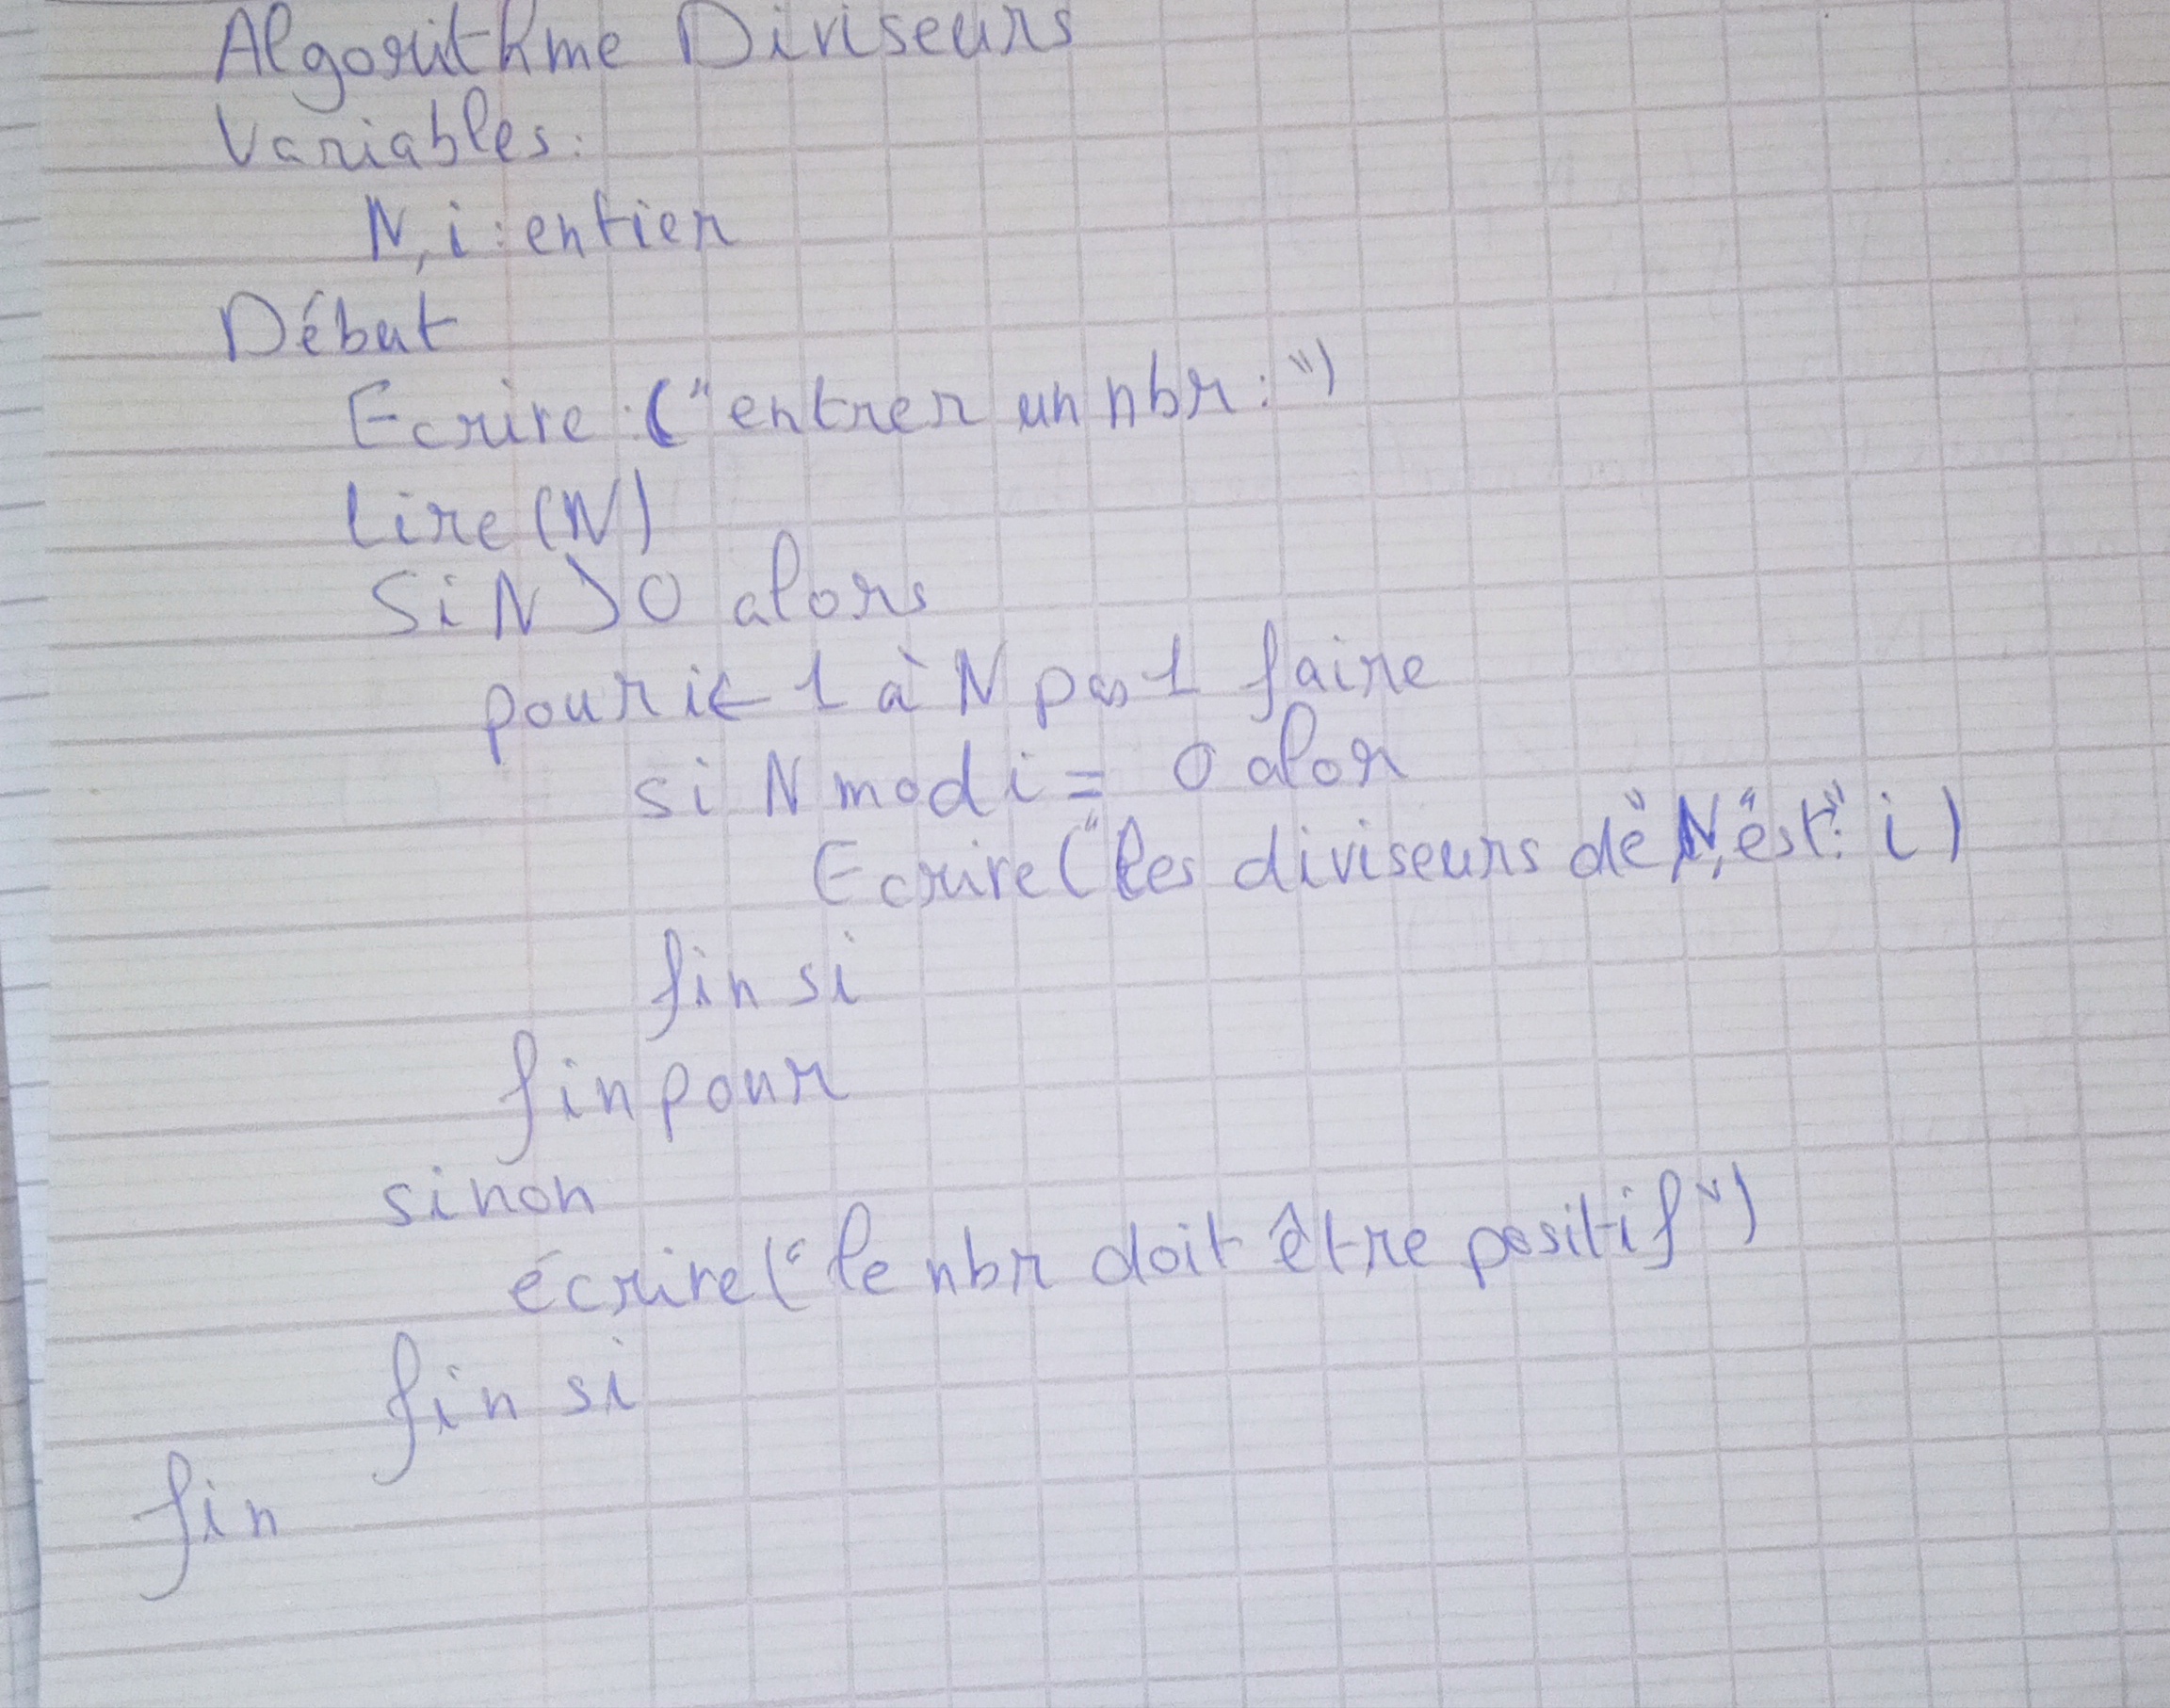 Algorithme Diviseurs
Variables:
N, i : entier
Début
Ecrire : ("entrer un nbr : ")
lire (N)
Si N > 0 alors
pour i ← 1 à N pas 1 faire
si N mod i = 0 alor
Ecrire ("les diviseurs de", N, "est:" i)
fin si
fin pour
sinon
écrire ("le nbr doit être positif")
fin si
fin